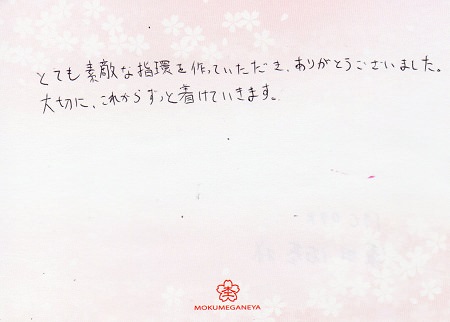 とても素敵な指環を作っていただき、ありがとうございました。
大切に、これからずっと着けていきます。
MOKUMEGANEYA